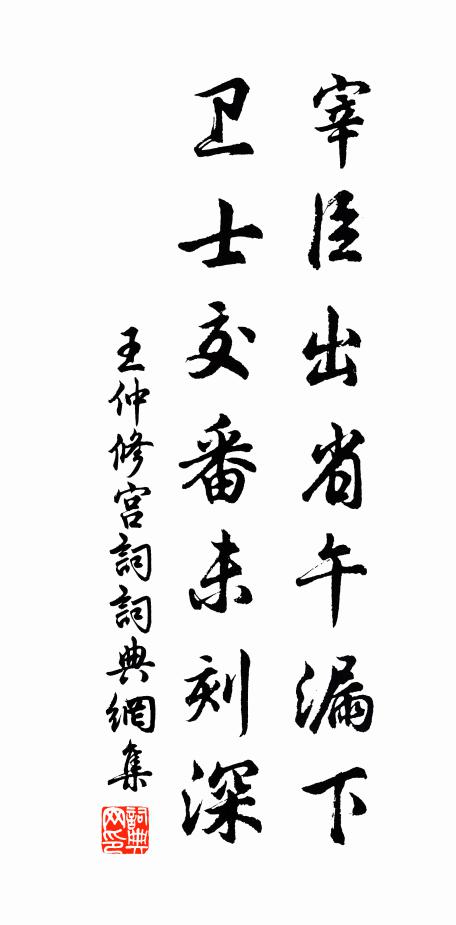 宰臣出省午漏下
卫士交番未刻深
王仲修宫詞詞典網集
詞典网印